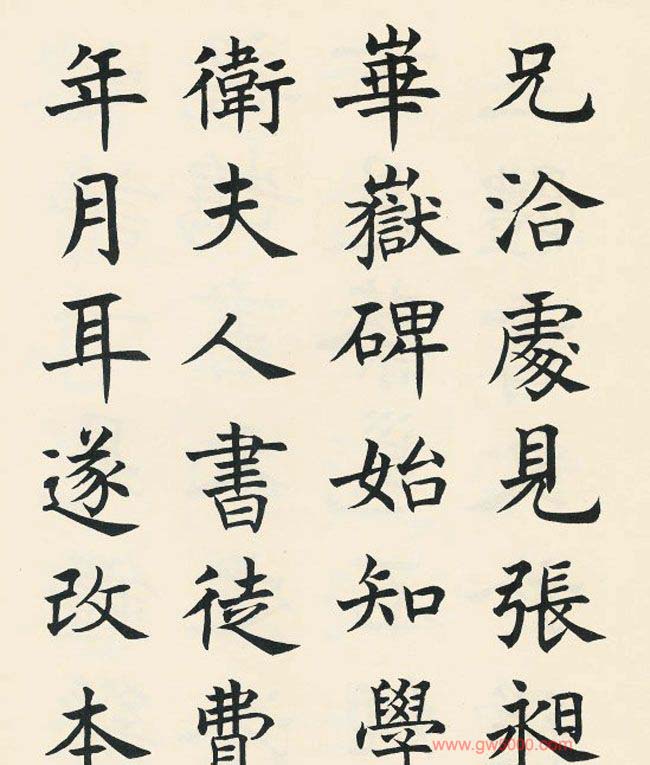 兄洽處見張昶
崋嶽碑始知學
衛夫人書徒費
年月耳遂改本
www.gw8000.com